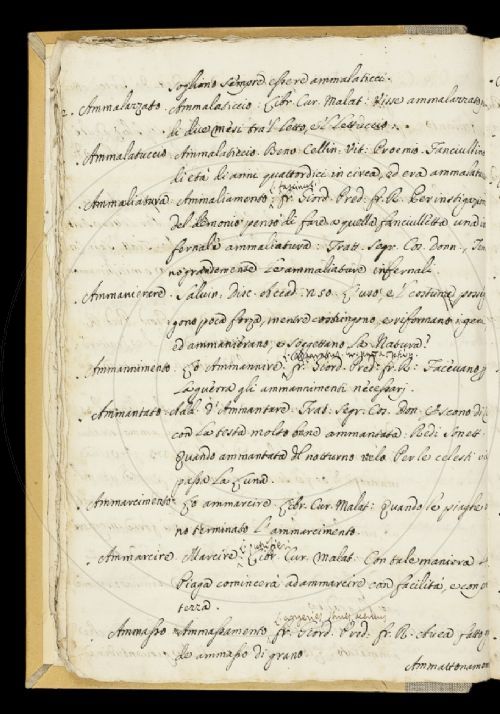 sogliano sempre essere ammalaticci.
Ammalazzato. Ammalaticcio: Libr. Cur. Malat: Visse ammalazzato
di due mesi tra'l letto, e'l lettuccio.
Ammalatuccio. Ammalaticcio. Benv. Cellin: Vit: Proemo. Fanciullino
di età di anni quattordici in circa, ed era ammalatu
Ammaliatura. Ammaliamento. fr. Giord. Pred: fr. R. Per instigazion
del demonio penso di fare a quella fanciulletta una in
fernale ammaliatura. Tratt. Segr. Cos. Donn. Tem
no grandemente le ammaliature infernali
Ammanierare. Salvin. Disc. Accad: n. 50. L'uso, e'l costume
gono poca forza, mentre costringono, e riformano
ed ammanierano, e soggettano la Natura.
Ammannimento. Lo Ammannire. fr. Giord. Pred: fr. R: Facevano p
la guerra gli ammannimenti necessarj.
Ammantato. dal. d'Ammantare. Trat. Segr. Cos. Don. Escono di
con la testa molto bene ammantata. Redi Sonett.
Quando ammantata del notturno velo Per le celesti vi
passa la Luna.
Ammarcimento. Lo ammarcire. Libr. Cur. Malat: Quando le piaghe
no terminato l'ammarcimento.
Ammarcire. Marcire. Libr. Cur. Malat: Con tale maniera
Piaga comincerà ad ammarcire con facilità, e con
tezza.
Ammasso. Ammassamento. fr. Giord. Pred: fr. R. Avea fatto
le ammasso di grano
Ammattonamen